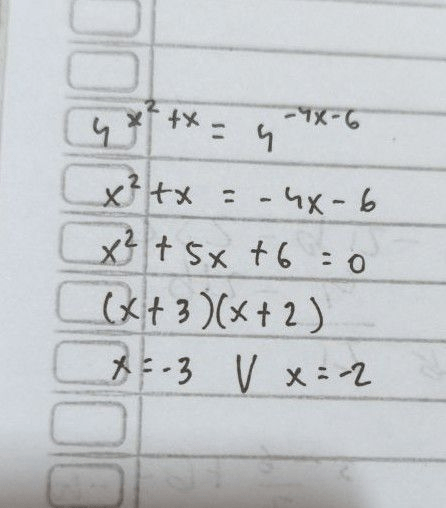 4^{x²+x} = 4^{-4x-6}
x² + x = -4x - 6
x² + 5x + 6 = 0
(x+3)(x+2)
x = -3 V x = -2